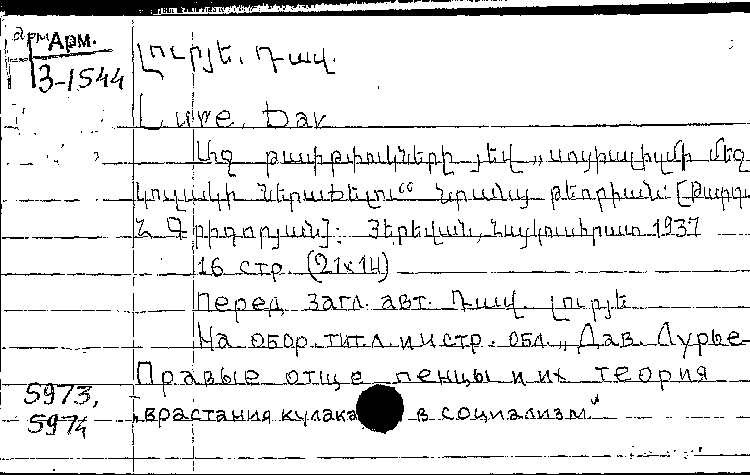 арм Арм.
3-1544
Լուրյե, Դավ.
Lurre, Dav
Աջ թափթփուկները յեվ „սոցիալիզմի մեջ
կուլակի ներաճելու“ նրանց թեորիան: [Թարգմ.
Հ. Գրիգորյան]: Յերեվան, Հայկուսհրատ 1937
16 стр. (21x14)
Перед загл. авт. Դավ. Լուրյե
На обор. тит. л. и и стр. обл. „Дав. Лурье-
Правые отщепенцы и их теория
„врастания кулака в социализм“
5973,
5974